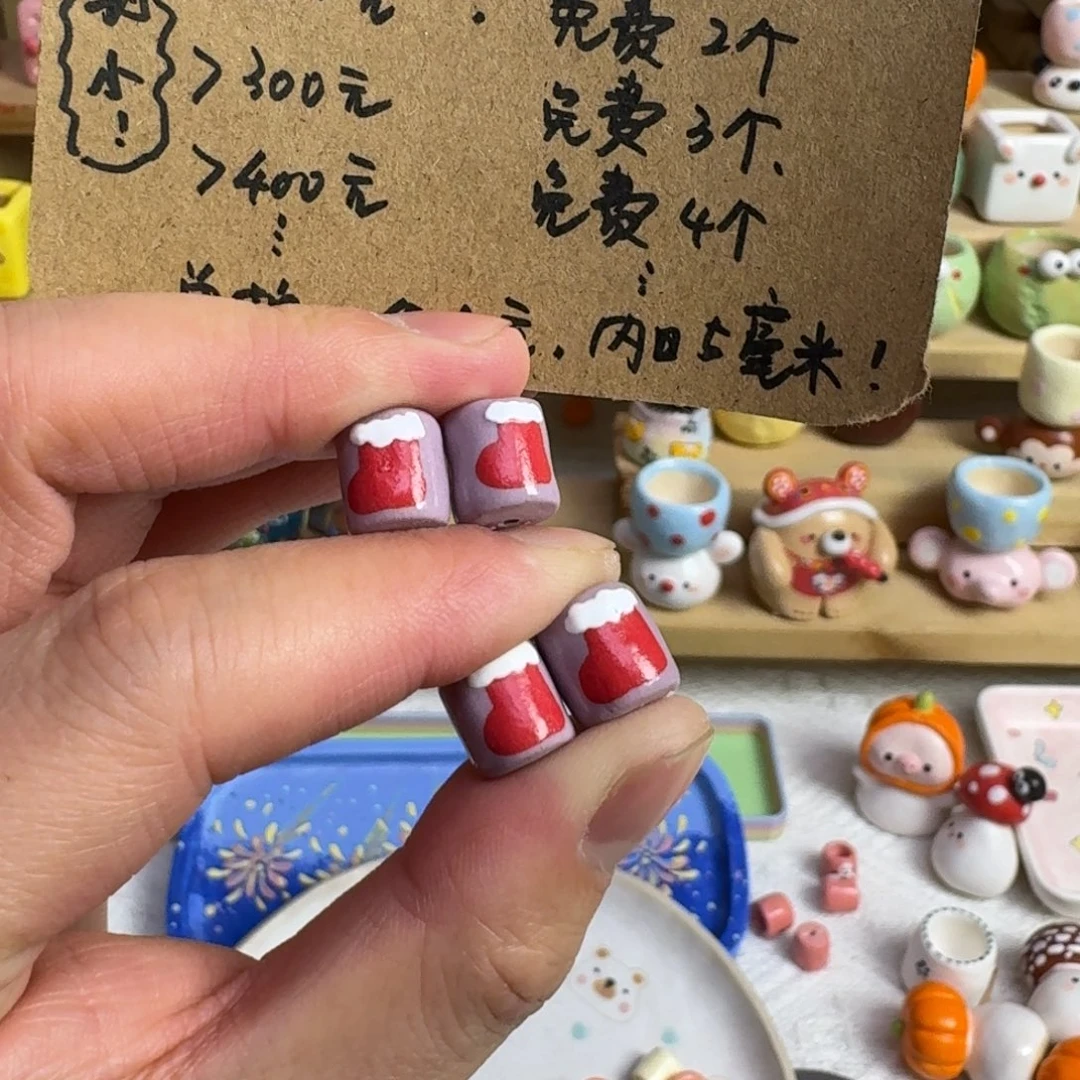 小！
>300元
免费2个
免费3个、
>400元
免费4个
元.内口5毫米！